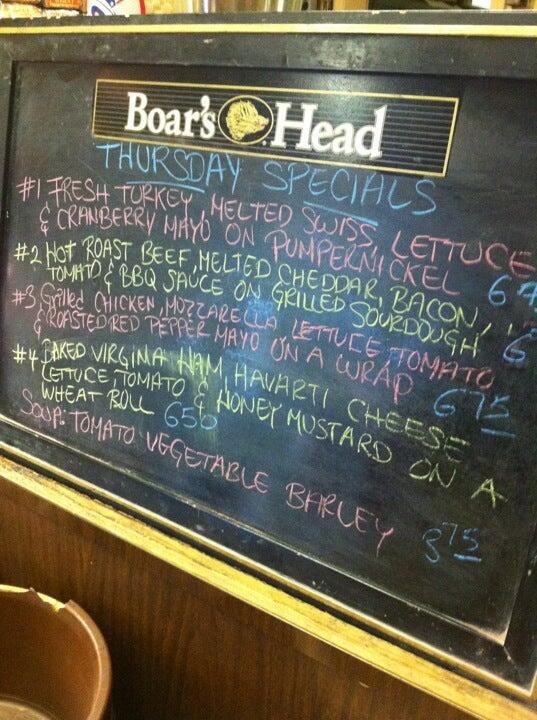 Boar's Head
THURSDAY SPECIALS
#1 FRESH TURKEY, MELTED SWISS, LETTUCE
& CRANBERRY MAYO ON PUMPERNICKEL
#2 HOT ROAST BEEF, MELTED CHEDDAR, BACON,
TOMATO & BBQ SAUCE ON GRILLED SOURDOUGH
#3 Grilled CHICKEN, MOZZARELLA LETTUCE, TOMATO
& ROASTED RED PEPPER MAYO ON A WRAP 675
#4 BAKED VIRGINIA HAM, HAVARTI CHEESE
LETTUCE, TOMATO & HONEY MUSTARD ON A
WHEAT ROLL 650
SOUP: TOMATO VEGETABLE BARLEY 375